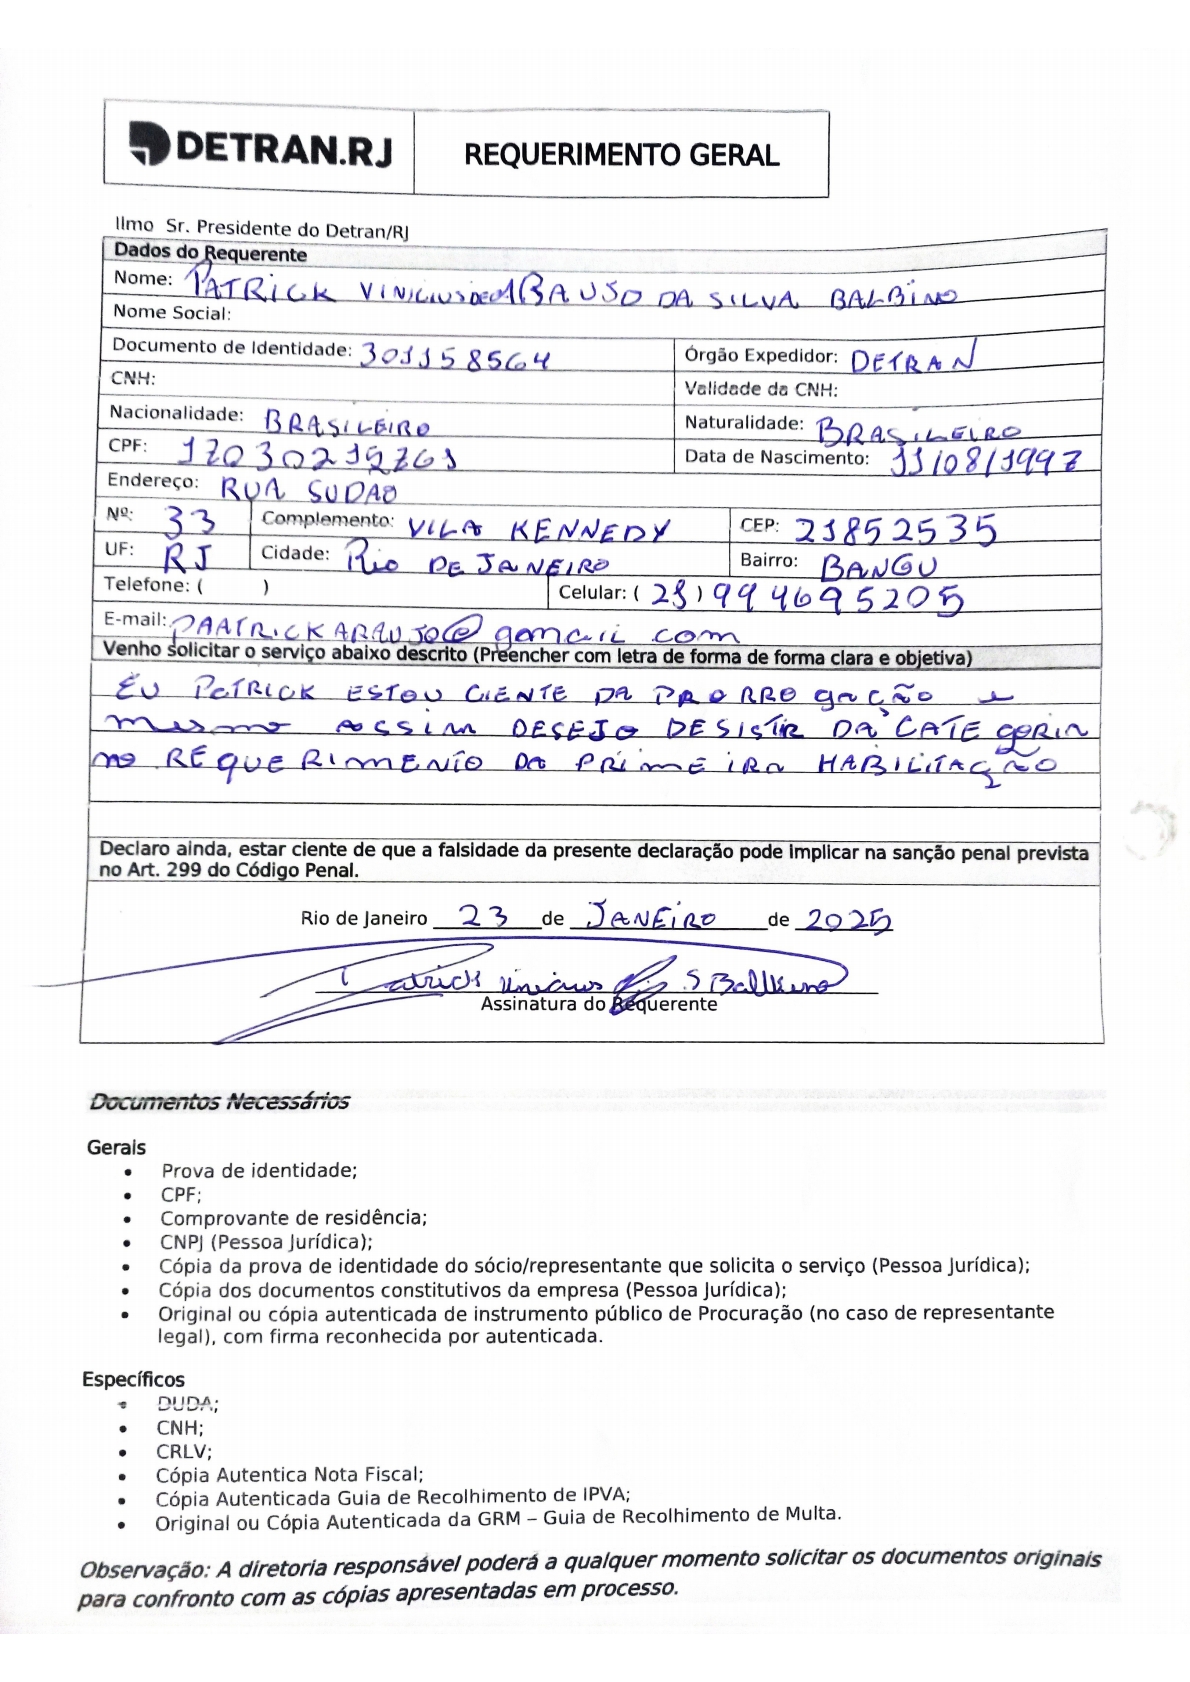 DETRAN.RJ
REQUERIMENTO GERAL
Ilmo Sr. Presidente do Detran/RJ
Dados do Requerente
Nome: PATRICK VINICIUS DE ARAUJO DA SILVA BALBINO
Nome Social:
Documento de Identidade: 301158564 Órgão Expedidor: DETRAN
CNH: Validade da CNH:
Nacionalidade: BRASILEIRO Naturalidade: BRASILEIRO
CPF: 17030219761 Data de Nascimento: 11/08/1997
Endereço: RUA SUDAO
Nº: 33 Complemento: VILA KENNEDY CEP: 21852535
UF: RJ Cidade: Rio DE JANEIRO Bairro: BANGU
Telefone: ( ) Celular: (21) 994695205
E-mail: PAATRICKARAUJO@gmail.com
Venho solicitar o serviço abaixo descrito (Preencher com letra de forma de forma clara e objetiva)
EU PATRICK ESTOU CIENTE DA PRORROgação e
mesmo ASSIM DESEJO DESISTIR DA CATEgoRIA
no REQUERIMENTO DA PRIMEIRA HABILITAÇÃO
Declaro ainda, estar ciente de que a falsidade da presente declaração pode implicar na sanção penal prevista
no Art. 299 do Código Penal.
Rio de Janeiro 23 de JANEIRO de 2025
Patrick Vinicius S Balbino
Assinatura do Requerente
Documentos Necessários
Gerais
• Prova de identidade;
• CPF;
• Comprovante de residência;
• CNPJ (Pessoa Jurídica);
• Cópia da prova de identidade do sócio/representante que solicita o serviço (Pessoa Jurídica);
• Cópia dos documentos constitutivos da empresa (Pessoa Jurídica);
• Original ou cópia autenticada de instrumento público de Procuração (no caso de representante
legal), com firma reconhecida por autenticada.
Específicos
• DUDA;
• CNH;
• CRLV;
• Cópia Autentica Nota Fiscal;
• Cópia Autenticada Guia de Recolhimento de IPVA;
• Original ou Cópia Autenticada da GRM – Guia de Recolhimento de Multa.
Observação: A diretoria responsável poderá a qualquer momento solicitar os documentos originais
para confronto com as cópias apresentadas em processo.